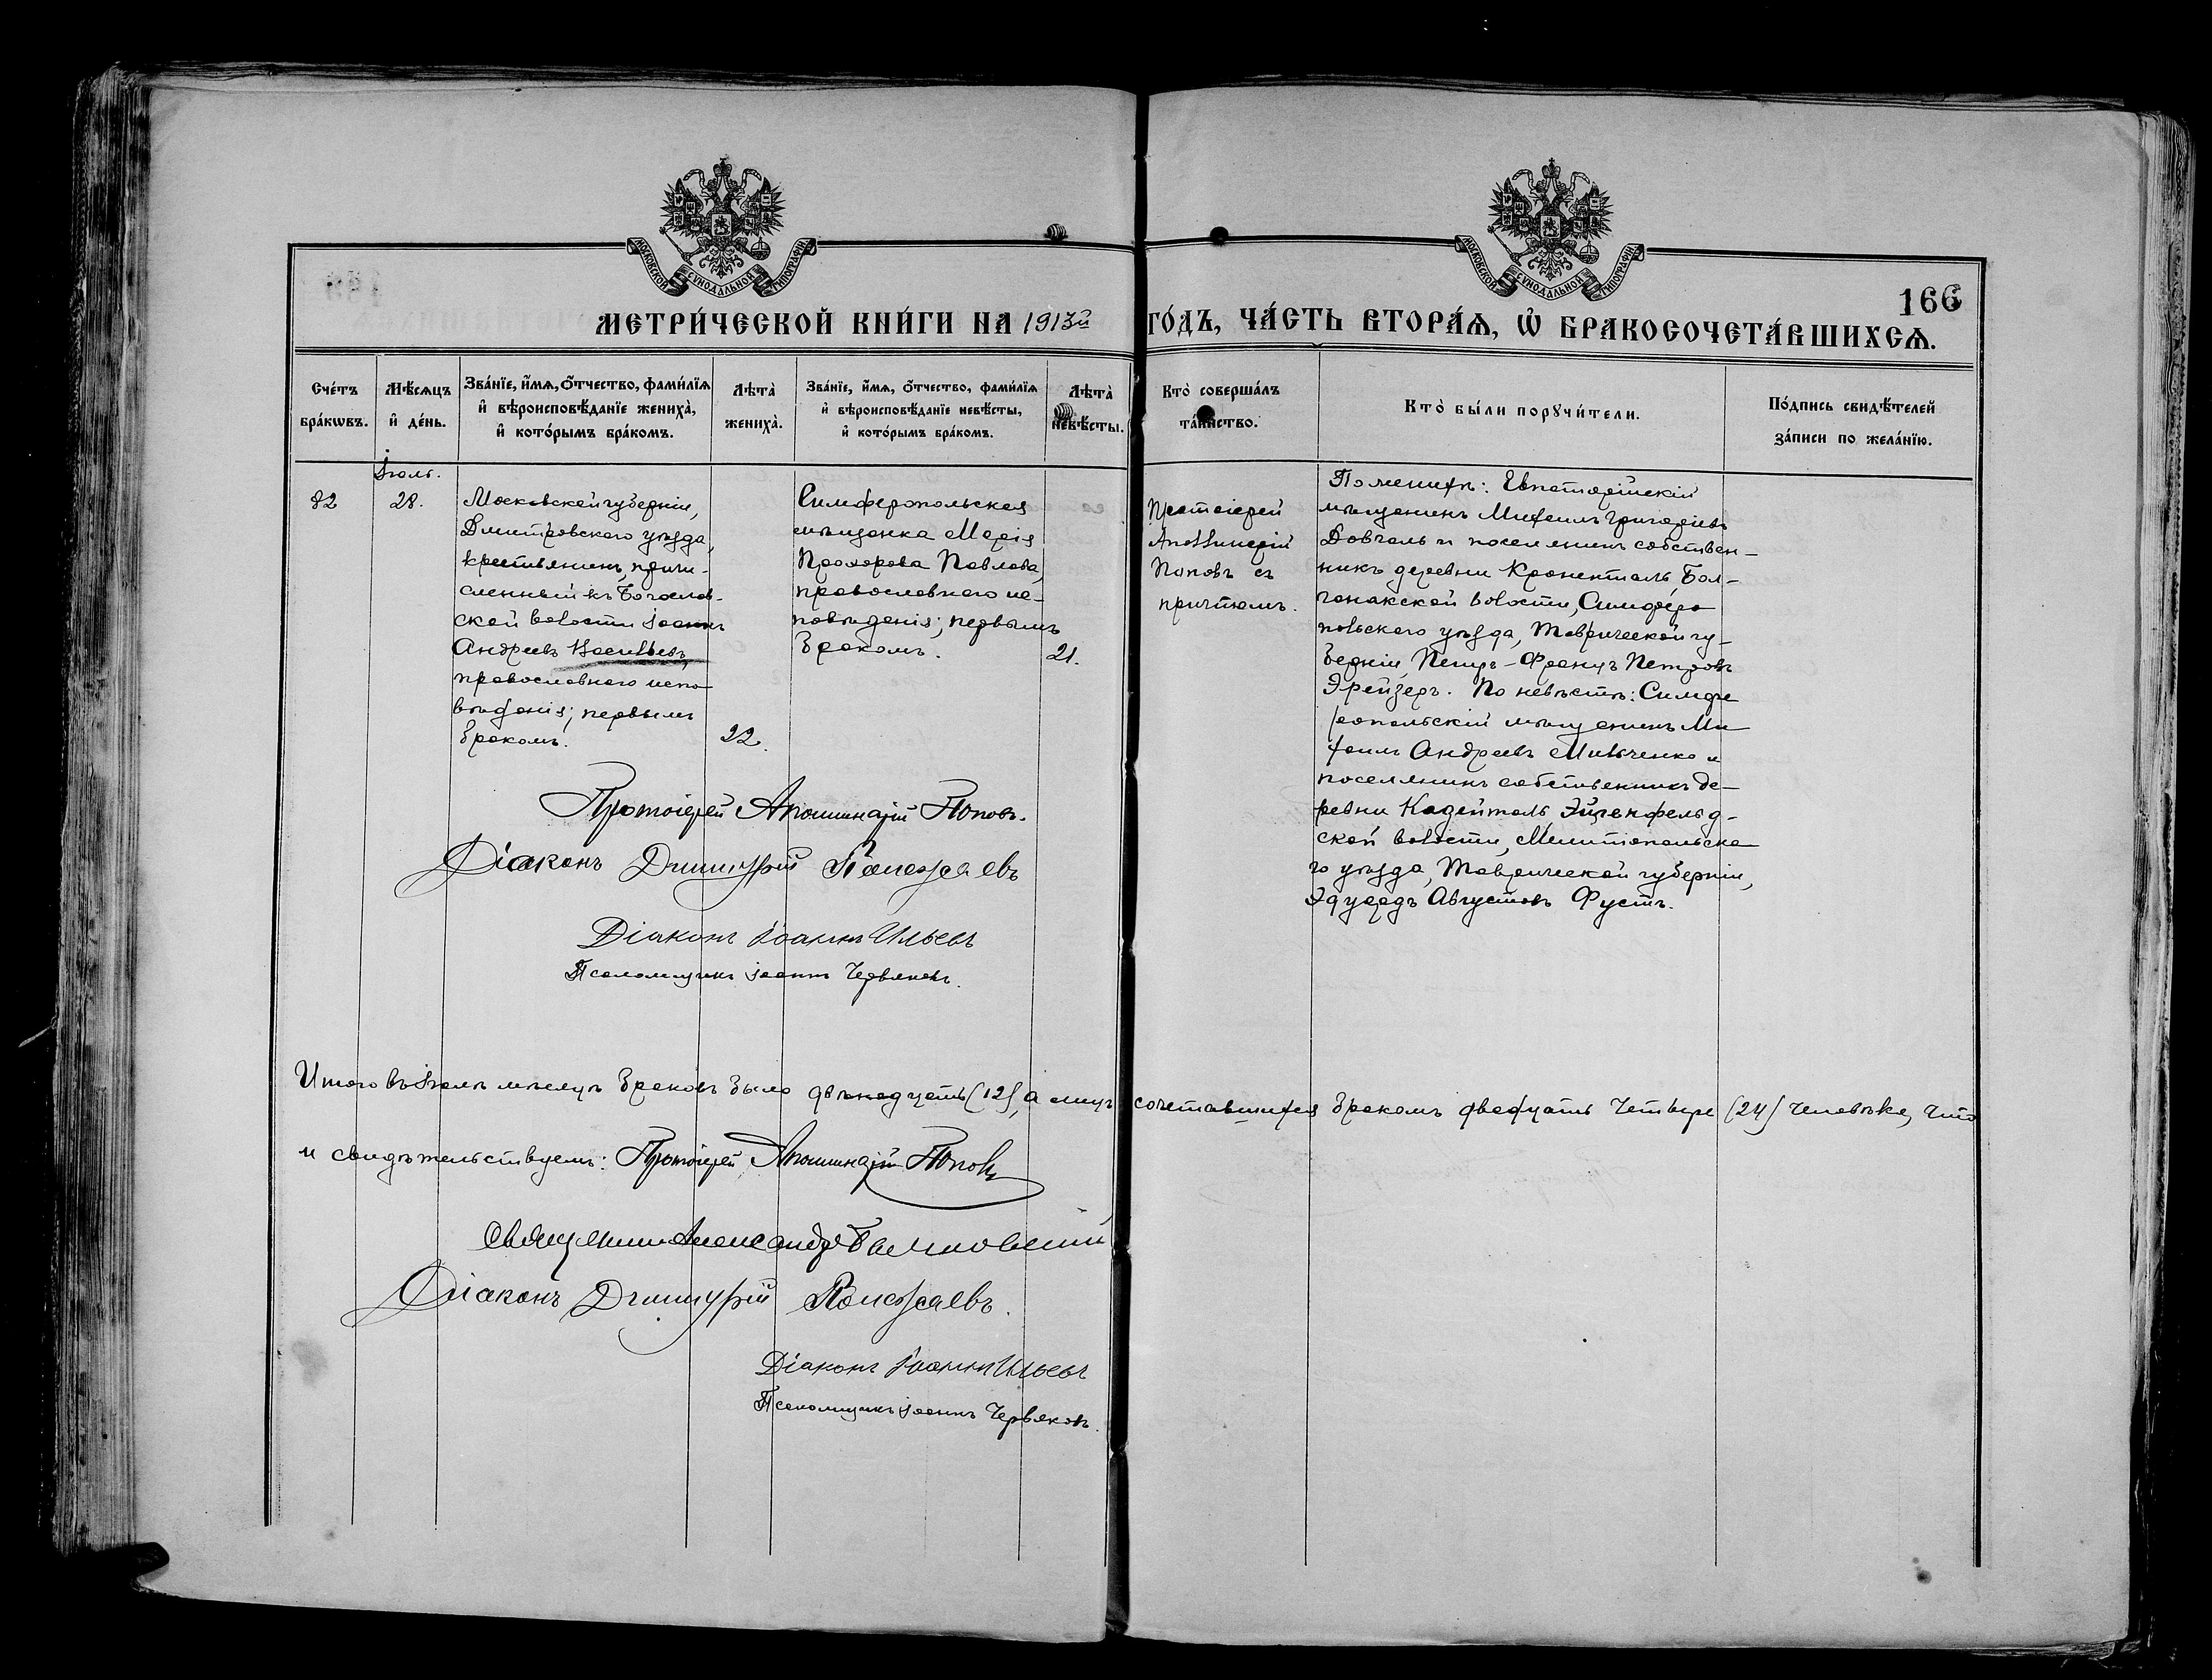 МОСКОВСКОЙ СУНОДАЛЬНОЙ ТИПОГРАФІИ
МОСКОВСКОЙ СУНОДАЛЬНОЙ ТИПОГРАФІИ
166
МЕТРИ́ЧЕСКОЙ КНИ́ГИ НА 1913й ГО́ДЪ, ЧА́СТЬ ВТОРА́Ѧ, Ѡ҆ БРАКОСОЧЕТА́ВШИХСѦ.
Сче́тъ
бра́кѡвъ.
Мѣ́сѧцъ
и҆ де́нь.
Зва́нїе, и҆́мѧ, ѻ҆́тчество, фами́лїѧ
и҆ вѣроисповѣ́данїе жениха̀,
и҆ кото́рымъ бра́комъ.
Лѣта̀
жениха̀.
Зва́нїе, и҆́мѧ, ѻ҆́тчество, фами́лїѧ
и҆ вѣроисповѣ́данїе невѣ́сты,
и҆ кото́рымъ бра́комъ.
Лѣта̀
невѣ́сты.
Кто̀ соверша́лъ
та́инство.
Кто̀ бы́ли порꙋчи́тели.
По́дпись свидѣ́телей
за́писи по жела́нїю.
Іюль.
82
28.
Московской губерніи,
Дмитровскаго уѣзда,
крестьянинъ, причи-
сленный къ Богослов-
ской волости Іоаннъ
Андреевъ Васильевъ,
православнаго испо-
вѣданія; первымъ
бракомъ.
22.
Симферопольская
мѣщанка Марія
Прохорова Павлова,
православнаго ис-
повѣданія; первымъ
бракомъ.
21.
Протоіерей
Аполлинарій
Поповъ съ
причтомъ.
По женихѣ: Евпаторійскій
мѣщанинъ Михаилъ Григоріевъ
Довгаль и поселянинъ собствен-
никъ деревни Кроненталь Бул-
ганакской волости, Симферо
польскаго уѣзда, Таврической гу-
берніи, Петръ-Францъ Петровъ
Эрейзеръ. По невѣстѣ: Симфе
ропольскій мѣщанинъ Ми
хаилъ Андреевъ Мильченко и
поселянинъ собственникъ де-
ревни Кадейталь Эйгенфельд-
ской волости, Мелитопольска
го уѣзда, Таврической губерніи,
Эдуардъ Августовъ Фустъ.
Протоіерей Аполлинарій Поповъ.
Діаконъ Димитрій
Діаконъ Іоаннъ Ильевъ
Псаломщикъ Іоаннъ Червяковъ.
Итого въ Іюлѣ мѣсяцѣ браковъ было двѣнадцать (12), а лицъ сочетавшихся бракомъ двадцать четыре (24) человѣка, что
и свидѣтельствуемъ: Протоіерей Аполлинарій Поповъ
Священникъ Александръ
Діаконъ Димитрій
Діаконъ Іоаннъ Ильевъ
Псаломщикъ Іоаннъ Червяковъ.